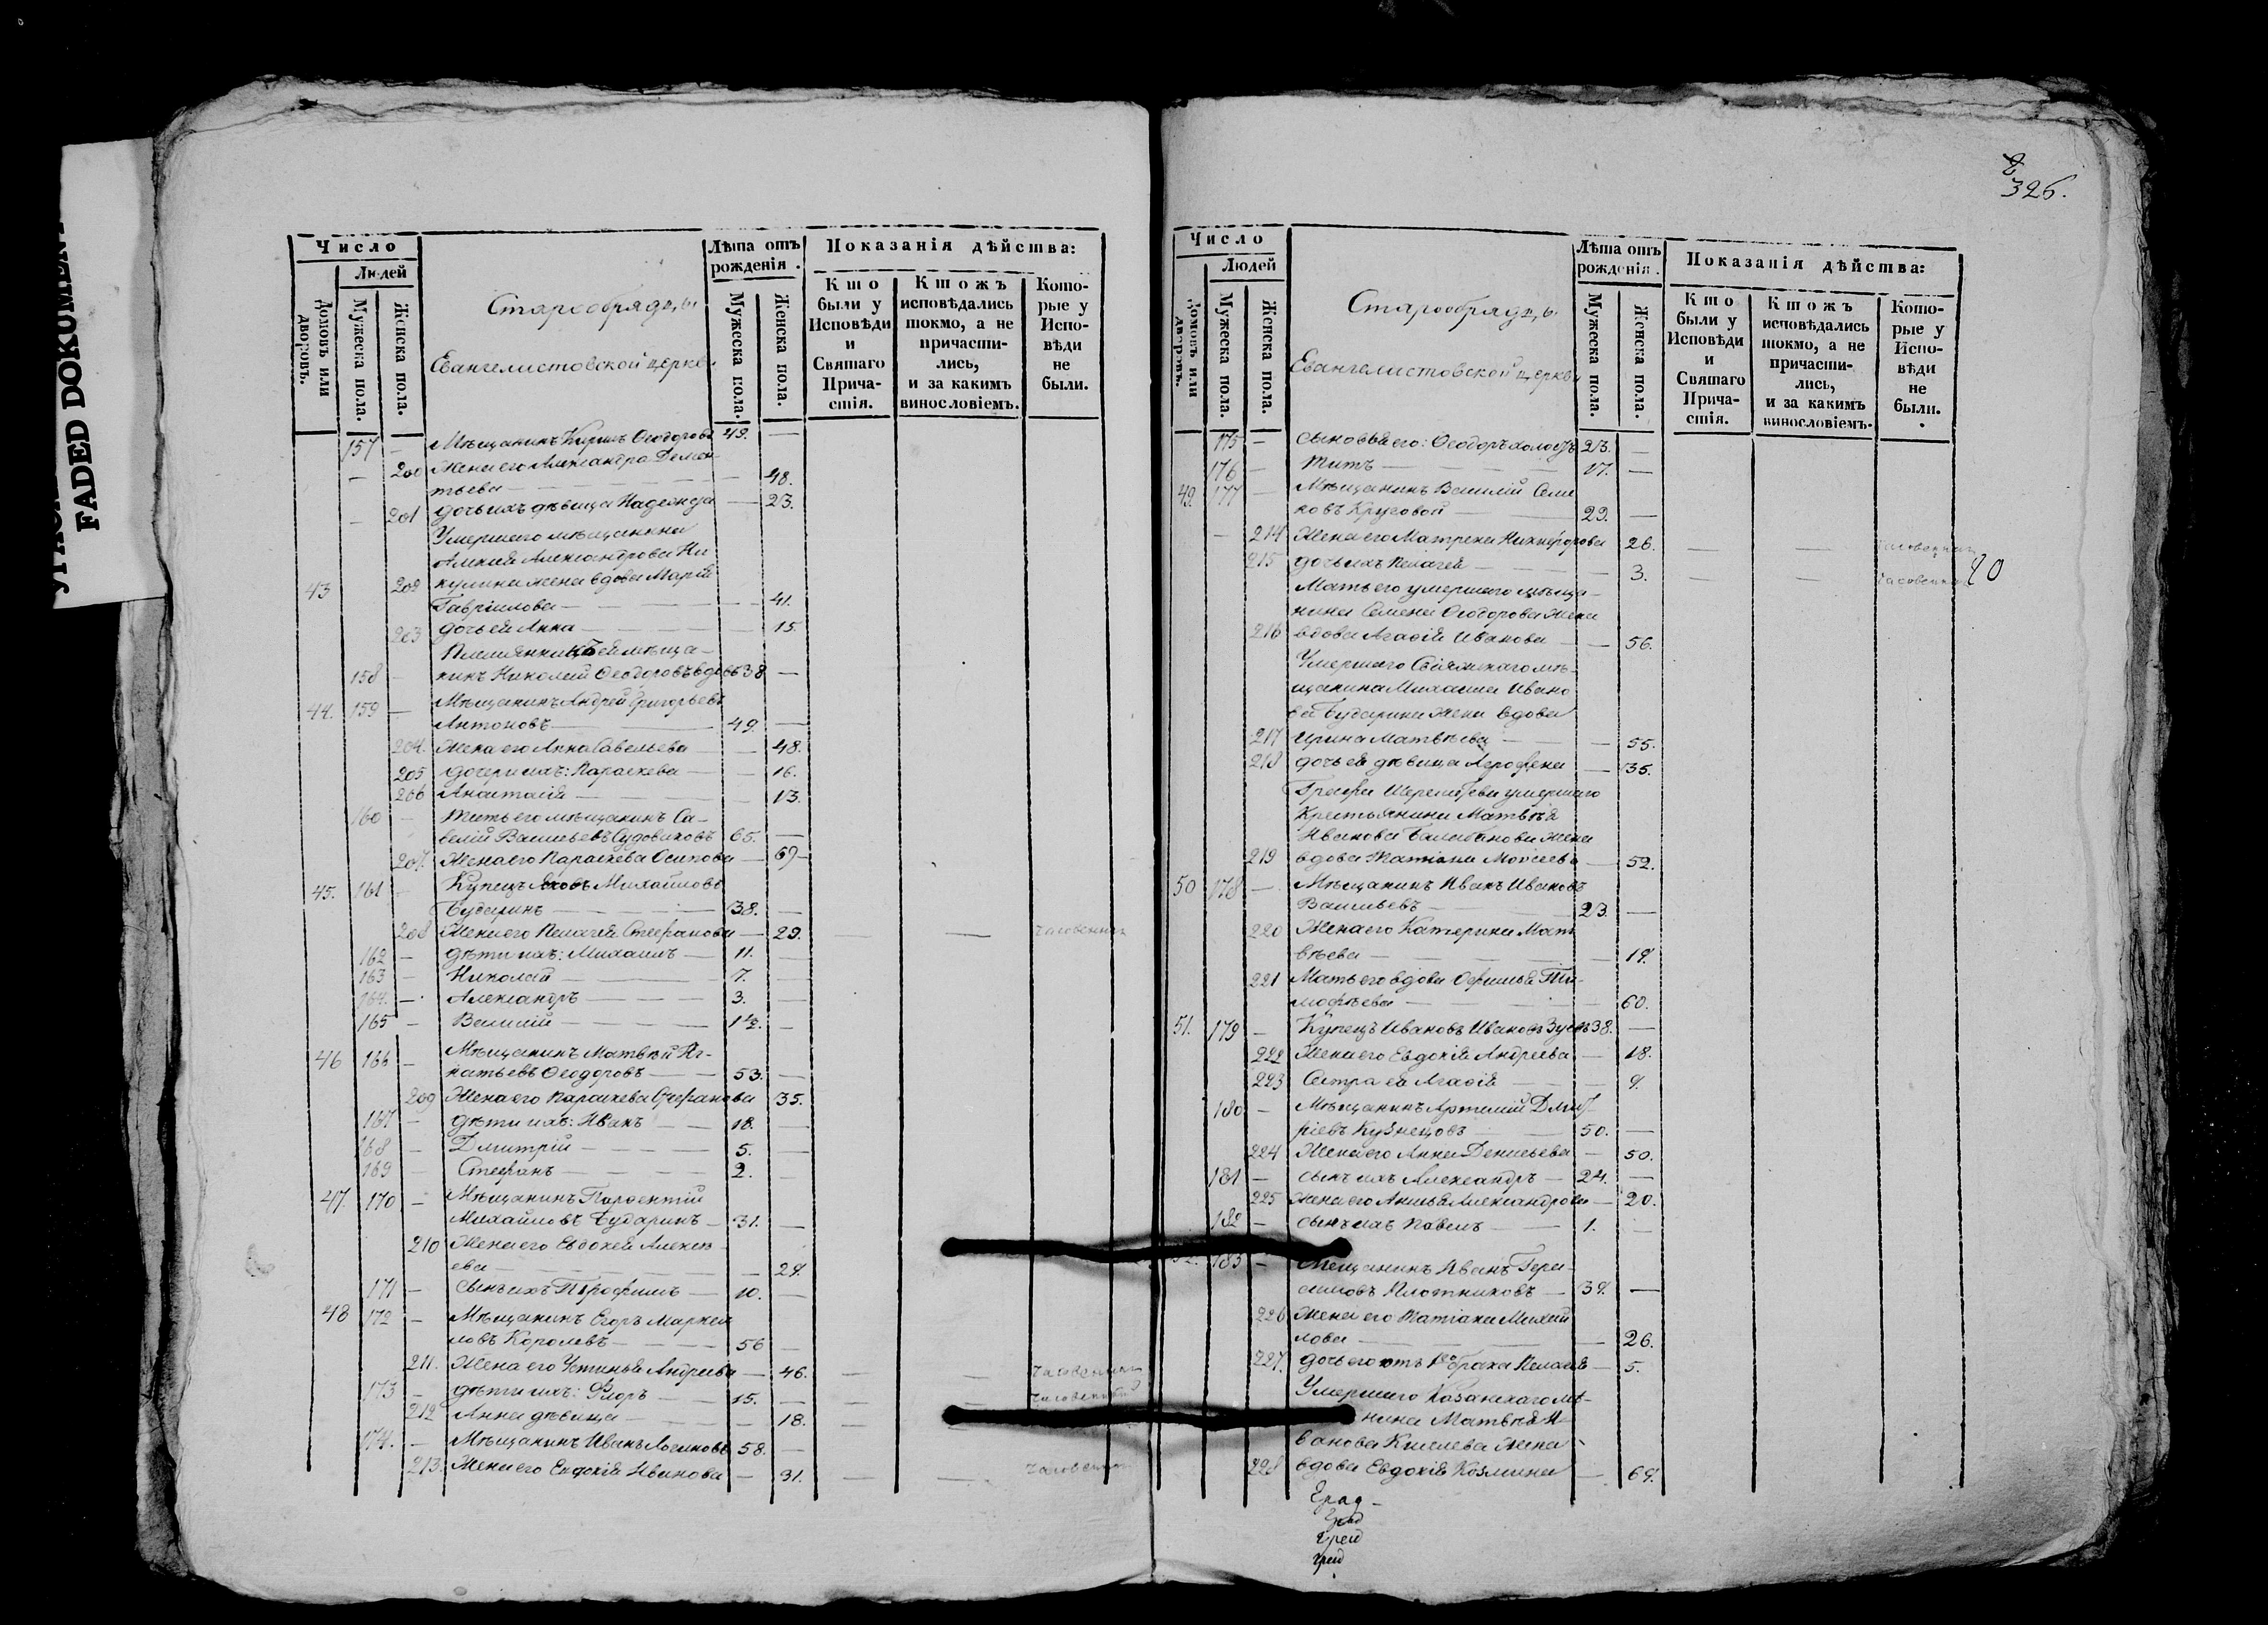 FADED DOKUMENT
Число
Людей
Домовъ или дворовъ.
Мужеска пола.
Женска пола.
Старообрядцы
Евангелистовской церкви
Лѣта отъ рожденія.
Мужеска пола.
Женска пола.
Показанія дѣйства:
Кто были у Исповѣди и Святаго Причастія.
Ктожъ исповѣдались токмо, а не причастились, и за какимъ винословіемъ.
Которые у Исповѣди не были.
157 — Мѣщанинъ Киръ Ѳеодоровъ 49. —
— 200 Жена его Александра Демен-
тьева — 48.
— 201 дочь ихъ дѣвица Надежда — 23.
Умершаго мѣщанина
Алексія Александрова Ни
43 202 кулина жена вдова Марія
Гавріилова — 41.
203 дочь ей Анна — 15.
Племянникъ ей мѣща-
158 — нинъ Николай Ѳеодоровъ вдовъ 38 —
44. 159 — Мѣщанинъ Андрей Григорьевъ
Антоновъ — 49. —
204. Жена его Анна Савельева — 48.
205 дочери ихъ: Параскева — 16.
206 Анастасія — 13.
160 — Тесть его мѣщанинъ Са-
велій Васильевъ Судовиковъ 65. —
207. Жена его Параскева Осипова — 69 —
45. 161 — Купецъ Яковъ Михайловъ
Бударинъ — 38. —
208 Жена его Пелагея Стефанова — 29. — — часовенная
162 — дѣти ихъ: Михаилъ — 11. —
163 — Николай — 7. —
164. — Александръ — 3. —
165 — Василій — 1½. —
46 166 — Мѣщанинъ Матвѣй Иг-
натьевъ Ѳеодоровъ — 53. —
209 Жена его Параскева Стефанова 35.
167 — дѣти ихъ: Иванъ — 18. —
168 — Дмитрій — 5. —
169 — Стефанъ — 2. —
47. 170 — Мѣщанинъ Парѳентій
Михайловъ Бударинъ — 31. —
210 Жена его Евдокея Алексѣ
ева — 29.
171 — сынъ ихъ Трофимъ — 10. —
48 172 — Мѣщанинъ Егоръ Маркел
ловъ Королевъ — 56 —
211. Жена его Устинья Андреева — 46. — — часовенная
173 — дѣти ихъ: Флоръ — 15. — — — часовенный
212 Анна дѣвица — 18. — —
174. — Мѣщанинъ Иванъ Логиновъ 58. —
213. Жена его Евдокія Иванова — 31. — — часовенная
326.
Число
Людей
Домовъ или дворовъ.
Мужеска пола.
Женска пола.
Старообрядцы
Евангелистовской церкви
Лѣта отъ рожденія.
Мужеска пола.
Женска пола.
Показанія дѣйства:
Кто были у Исповѣди и Святаго Причастія.
Ктожъ исповѣдались токмо, а не причастились, и за какимъ винословіемъ.
Которые у Исповѣди не были.
175 — сыновья его: Ѳеодоръ холостъ 23. —
176 — Титъ — 17. —
49. 177 — Мѣщанинъ Василій Семе
новъ Круговой — 29. —
— 214 Жена его Матрена Никифорова 26. — — часовенная
215 дочь ихъ Пелагея — 3. — — часовенная 20
Мать его умершаго мѣща-
нина Семена Ѳеодорова жена
216 вдова Агаѳія Иванова — 56.
Умершаго мѣ-
щанина Михаила Ивано
ва Бударина жена вдова
217 Ирина Матвѣева — 55.
218 дочь ей дѣвица Агрофена — 35.
Графа Шереметева умершаго
Крестьянина Матвѣя
Иванова Балабанова жена
219 вдова Татіана Моисеева — 52.
50 178 — Мѣщанинъ Иванъ Ивановъ
Васильевъ — 23. —
220 Жена его Катерина Мат
вѣева — 19.
221 Мать его вдова Офимья Ти-
мофѣева — 60.
51. 179 — Купецъ Ивановъ Ивановъ 38. —
222 Жена его Евдокія Андреева — 18.
223 Сестра ей Агаѳія — 9.
180 — Мѣщанинъ Артемій Дмит-
ріевъ Кузнецовъ — 50. —
224 Жена его Анна Денисьева — 50.
181 — сынъ ихъ Александръ — 24. —
225 Жена его Анисья Александрова — 20.
182 — сынъ ихъ Павелъ — 1. —
52. 183 — Мещанинъ Иванъ Гера-
симовъ Плотниковъ — 39. —
226 Жена его Татіана Михай
лова — 26.
227. дочь его отъ 1го брака Пелагея — 5.
Умершаго Казанскаго мѣ-
нина Матвѣя И-
ванова Киселева жена
228 вдова Евдокія Козмина — 69.